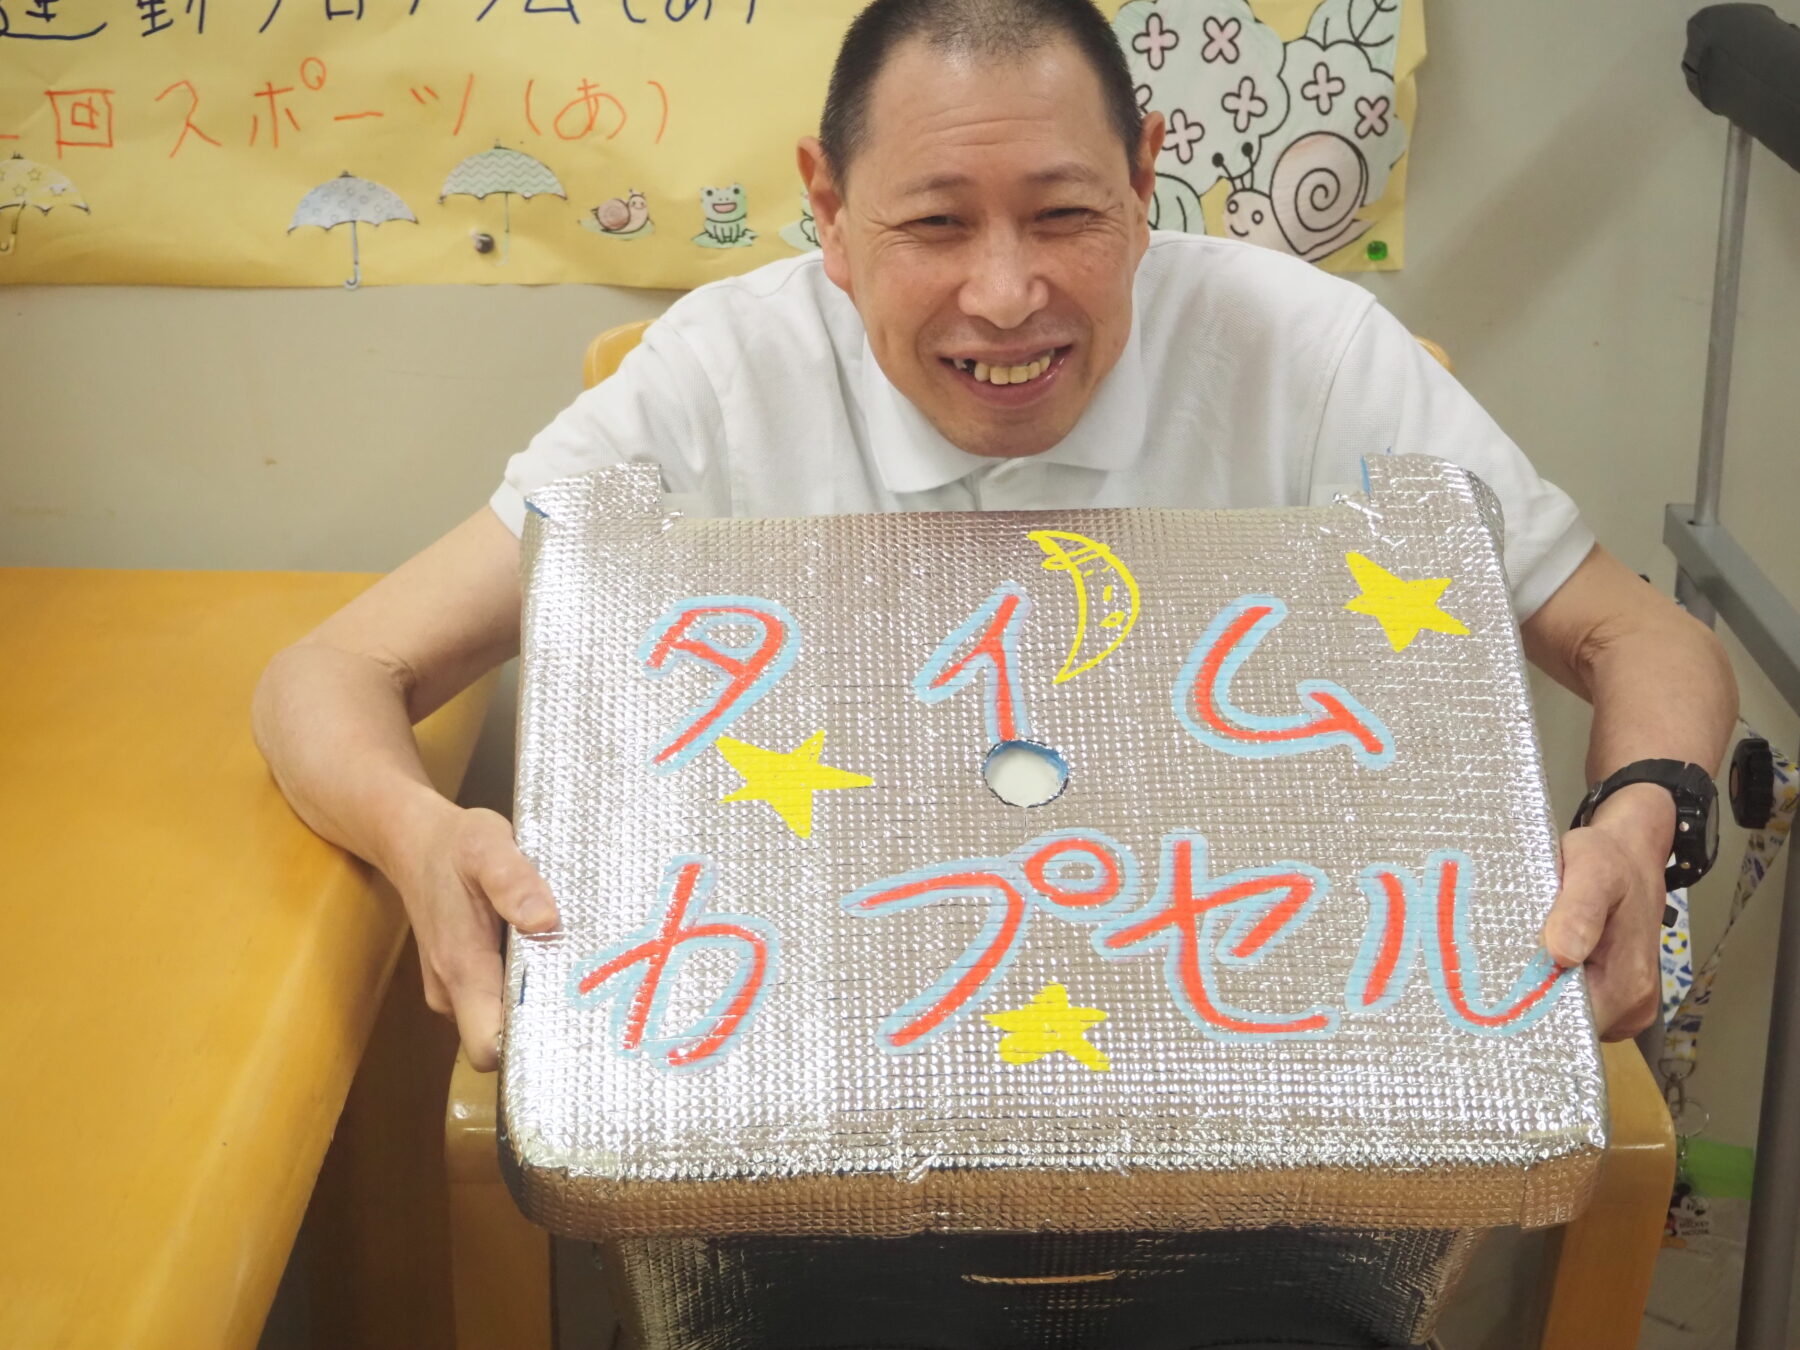 運動プログラム(あ)
回スポーツ(あ)
タイム
カプセル